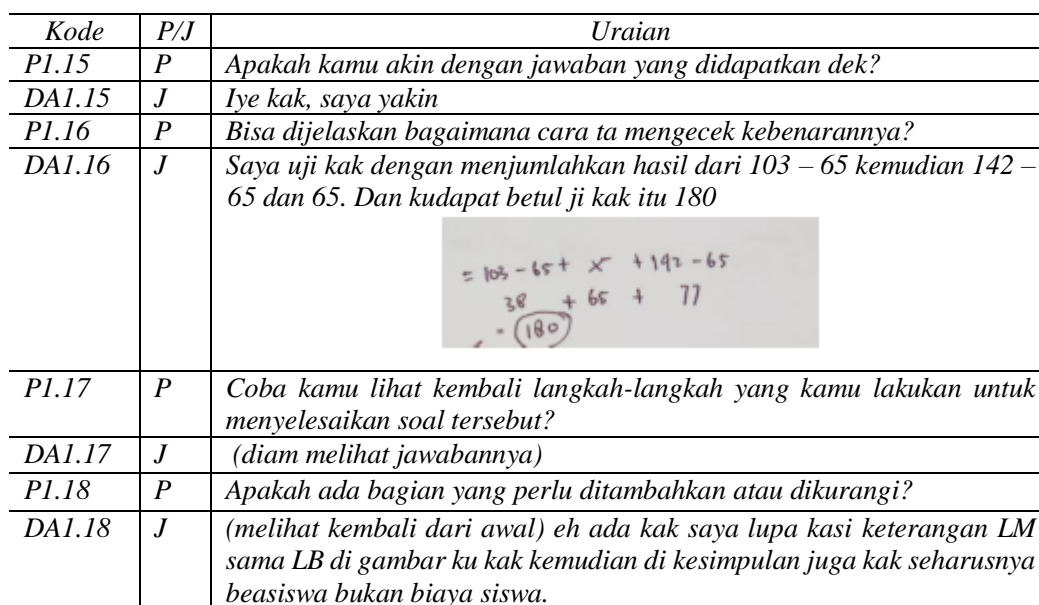 Kode P/J Uraian
P1.15 P Apakah kamu akin dengan jawaban yang didapatkan dek?
DA1.15 J Iye kak, saya yakin
P1.16 P Bisa dijelaskan bagaimana cara ta mengecek kebenarannya?
DA1.16 J Saya uji kak dengan menjumlahkan hasil dari 103 – 65 kemudian 142 –
65 dan 65. Dan kudapat betul ji kak itu 180
= 103 - 65 + x + 142 - 65
38 + 65 + 77
= 180
P1.17 P Coba kamu lihat kembali langkah-langkah yang kamu lakukan untuk
menyelesaikan soal tersebut?
DA1.17 J (diam melihat jawabannya)
P1.18 P Apakah ada bagian yang perlu ditambahkan atau dikurangi?
DA1.18 J (melihat kembali dari awal) eh ada kak saya lupa kasi keterangan LM
sama LB di gambar ku kak kemudian di kesimpulan juga kak seharusnya
beasiswa bukan biaya siswa.